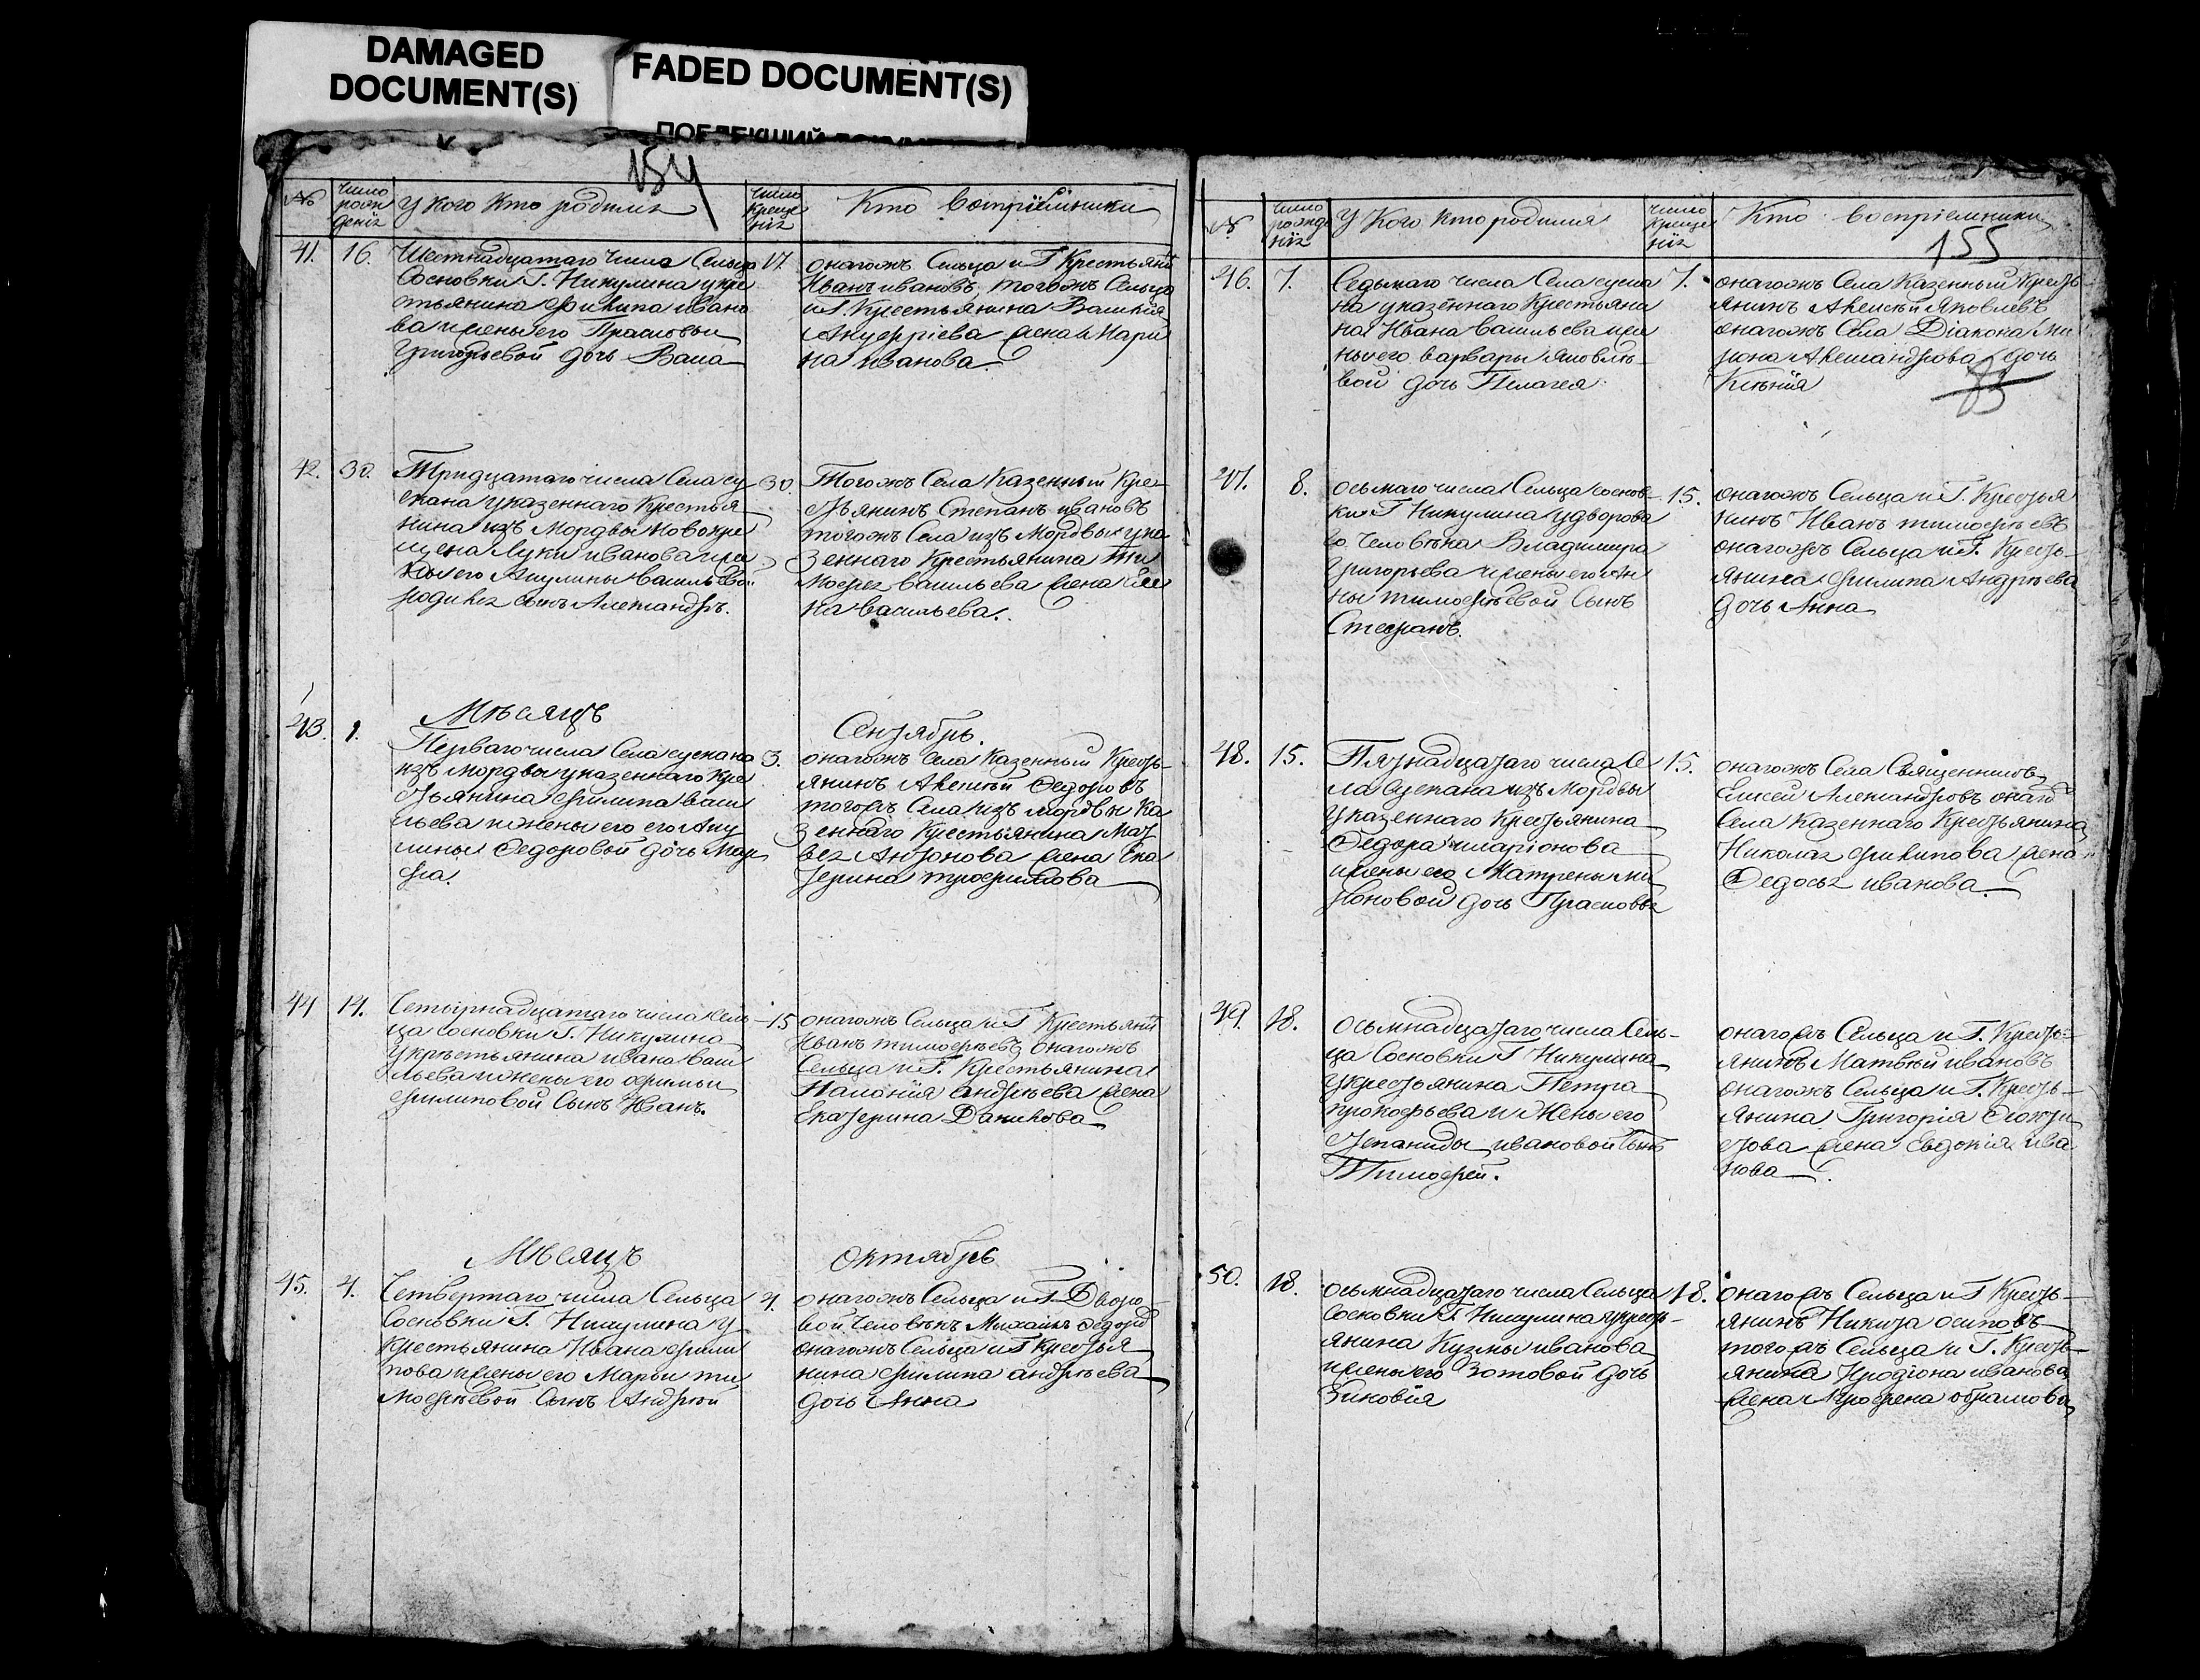 DAMAGED
DOCUMENT(S)
FADED DOCUMENT(S)
154
№
Число рождениѧ
У кого кто родилсѧ
Число крещениѧ
Кто восприемники
41.
16.
Шестнадцатаго числа Сельца
Сосновки Г. Никулина у кре
стьянина Филипа ивано
ва и жены его Прасковьи
Григорьевой дочь Васа
17.
онагожъ Сельца и Г Крестьяни
Иванъ ивановъ, тогожъ Сельца
и Г. Крестьянина Василия
Ануфріева жена Мари
на иванова.
42.
30.
Тридцатаго числа Села су
скана у казеннаго Крестья
нина изъ Мордвы Новокре
щена Луки иванова и же
ны его Акулины василье
родилсѧ сынъ Александръ.
30.
Тогожъ Села Казенный Кре
стьянинъ Степанъ ивановъ
тогожъ Села изъ Мордвы у ка
зеннаго Крестьянина Ти
мофеѧ васильева жена
на васильева.
Мѣсяцъ
Сентябрь.
43.
1.
Перваго числа Села сускана
изъ мордвы у казеннаго кре
стьянина филипа васи
льева и жены его его Аку
лины Федоровой дочь Мар
фа.
3.
онагожъ Села Казенный Кресть
янинъ Алексѣй Федоровъ
тогожъ Села изъ мордвы ка
зеннаго Крестьянина Мат
веѧ Антонова жена Ека
терина трофимова
44
14.
Четырнадцатаго числа Сель
ца Сосновки Г. Никулина
у крѣстьянина ивана васи
льева и жены его
филиповой Сынъ Иванъ.
15
онагожъ Сельца и Г Крестьяни
Иванъ тимофѣевъ онагожъ
Сельца и Г. Крестьянина
андрѣева жена
Екатерина Данилова
Мѣсяцъ
октябрь
45.
4.
Четвертаго числа Сельца
Сосновки Г. Никулина у
Крестьянина Ивана фили
пова и жены его Марьи ти
мофѣевой Сынъ Андрѣй
4.
онагожъ Сельца и Г. Дворо
вой Человѣкъ Михаилъ
онагожъ Сельца и Г Крестья
нина филипа андрѣева
дочь Анна
№
Число рожденіѧ
У кого кто родилсѧ
Число крещеніѧ
Кто воспріемники
155
46.
7.
Седьмаго числа Села суска
на у казеннаго Крестьяни
на Ивана васильева и же
ны его варвары яковлѣ
вой дочь Пелагея.
7.
онагожъ Села Казенный Кресть
янинъ Алексѣй Яковлевъ
онагожъ Села Діакона Ми
рона Александрова дочь
Ксѣнія
83
47.
8.
осьмаго числа Сельца соснов
ки Г Никулина у дворова
го человѣка Владимира
Григорьева и жены его Ан
ны тимофѣевой Сынъ
Стефанъ.
15.
онагожъ Сельца и Г. Крестья
нинъ Иванъ тимофѣевъ
онагожъ Сельца и Г. Кресть
янина филипа Андрѣева
дочь Анна
48.
15.
Пятнадцатаго числа Се
ла Сускана изъ Мордвы
у казеннаго Крестьянина
Федора иларіонова
и жены его Матрены Ми
роновой дочь Прасковьѧ
15.
онагожъ Села Священникъ
Елисей Александровъ онаго
Села Казеннаго Крестьянина
Николаѧ филипова жена
Федосьѧ иванова.
49.
18.
осьмнадцатаго числа Сель
ца Сосновки Г Никулина
у крестьянина Петра
прокофьева и Жены его
степаниды ивановой Сынъ
Тимофей.
онагожъ Сельца и Г. Кресть
янинъ Матвѣй ивановъ
онагожъ Сельца и Г. Кресть
янина Григорія
жена Евдокія ива
нова
50.
18.
осьмнадцатаго числа Сельца
Сосновки Г. Никулина у крест
янина Кузмы иванова
и жены его Зотовой дочь
Зиновія
18.
онагожъ Сельца и Г Кресть
янинъ Никита осиповъ
тогожъ Сельца и Г. Кресть
янина Иродіона иванова
жена